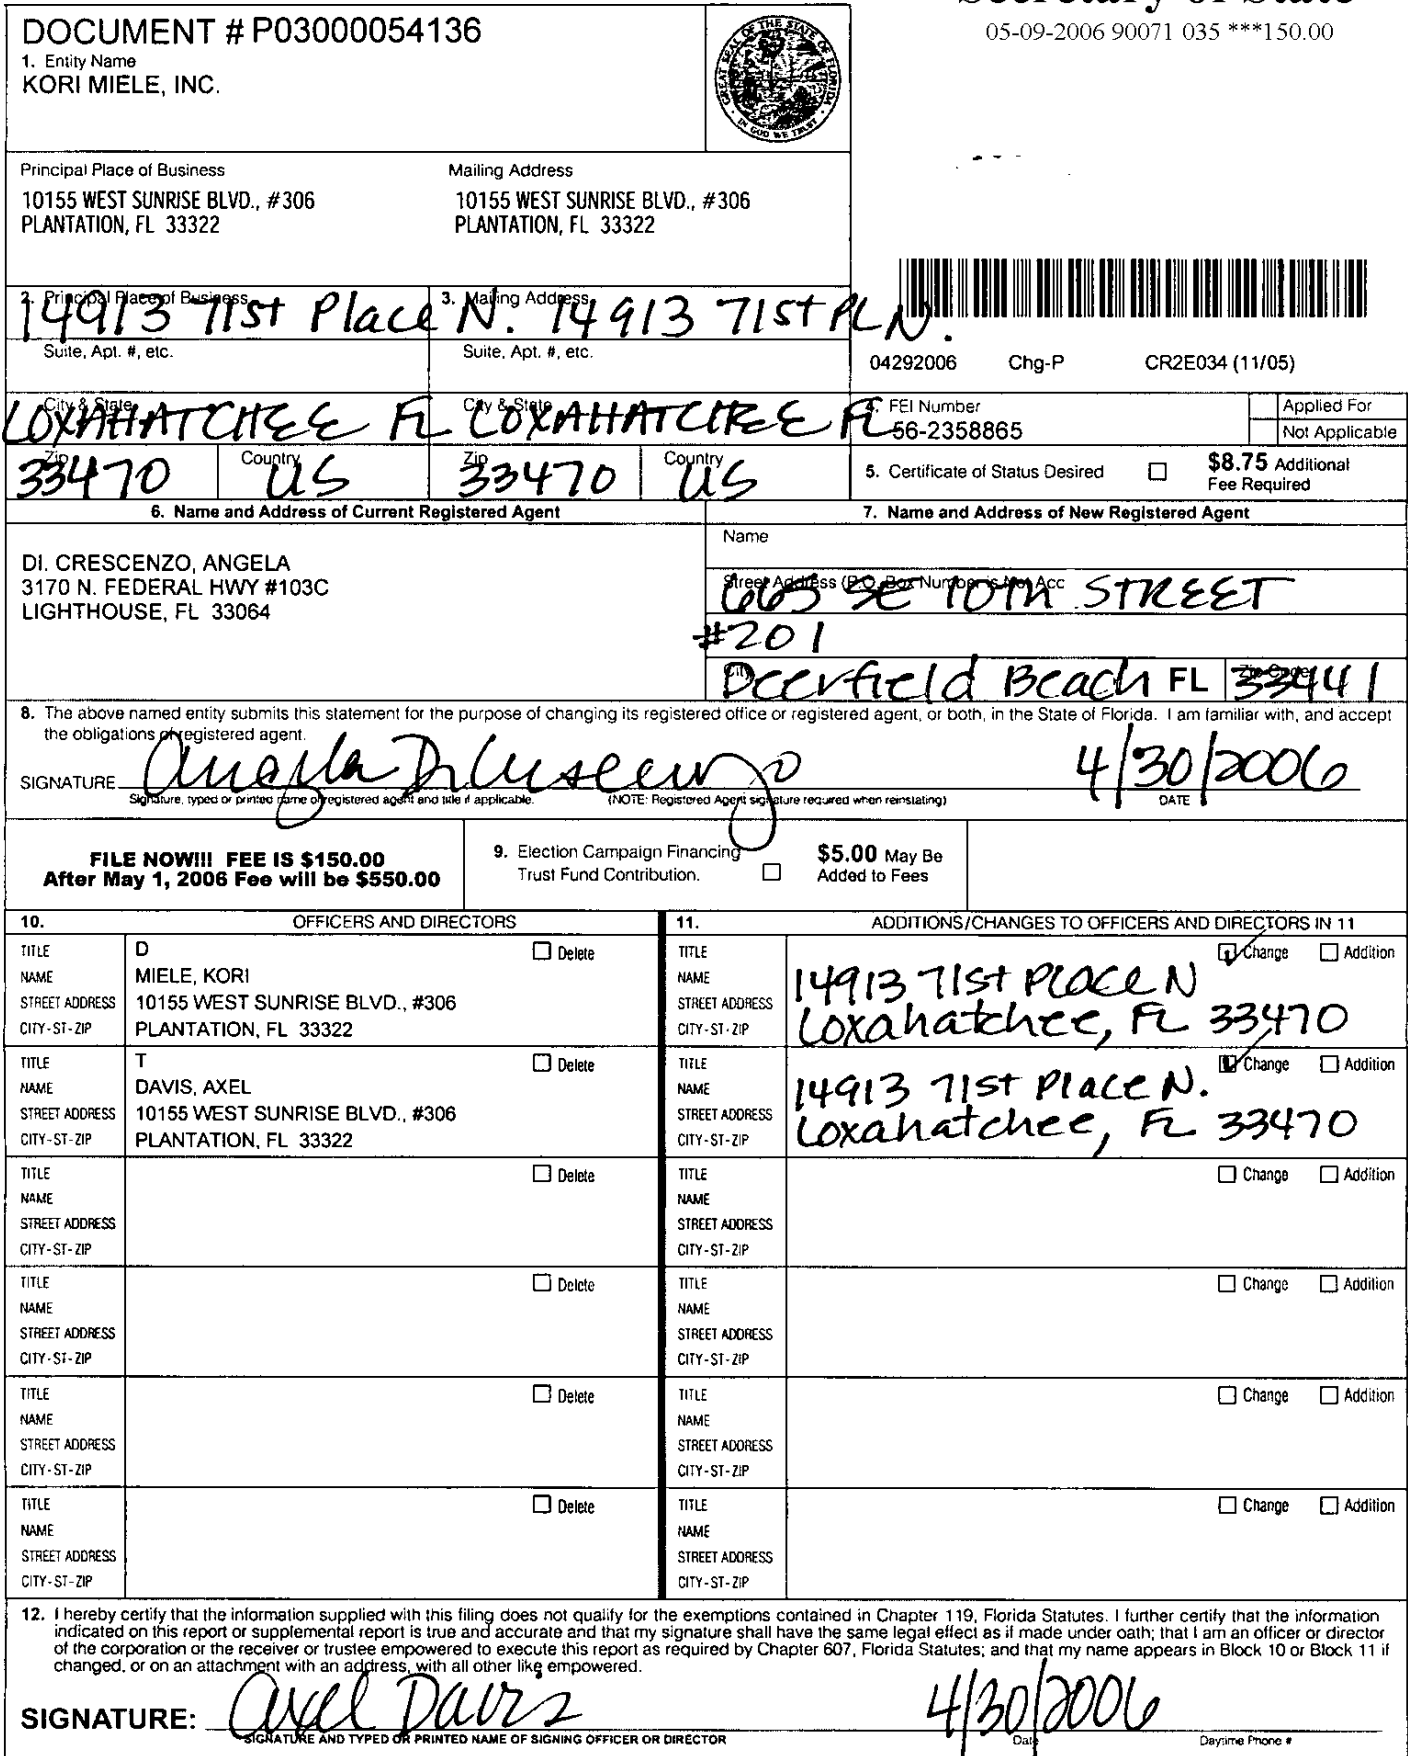 Secretary of State
05-09-2006 90071 035 ***150.00
DOCUMENT # P03000054136
1. Entity Name
KORI MIELE, INC.
GREAT SEAL OF THE STATE OF FLORIDA
IN GOD WE TRUST
Principal Place of Business
10155 WEST SUNRISE BLVD., #306
PLANTATION, FL 33322
Mailing Address
10155 WEST SUNRISE BLVD., #306
PLANTATION, FL 33322
2. Principal Place of Business
14913 71st Place N.
3. Mailing Address
14913 71st PL N.
Suite, Apt. #, etc.
Suite, Apt. #, etc.
04292006 Chg-P CR2E034 (11/05)
City & State
LOXAHATCHEE FL
City & State
LOXAHATCHEE FL
4. FEI Number
56-2358865
Applied For
Not Applicable
Zip
33470
Country
US
Zip
33470
Country
US
5. Certificate of Status Desired
$8.75 Additional
Fee Required
6. Name and Address of Current Registered Agent
DI. CRESCENZO, ANGELA
3170 N. FEDERAL HWY #103C
LIGHTHOUSE, FL 33064
7. Name and Address of New Registered Agent
Name
Street Address (P.O. Box Number is Not Acc
665 SE 10th STREET
#201
City
Deerfield Beach FL
Zip Code
33441
8. The above named entity submits this statement for the purpose of changing its registered office or registered agent, or both, in the State of Florida. I am familiar with, and accept
the obligations of registered agent.
SIGNATURE Angela DiCrescenzo 4/30/2006
Signature, typed or printed name of registered agent and title if applicable. (NOTE: Registered Agent signature required when reinstating) DATE
FILE NOW!!! FEE IS $150.00
After May 1, 2006 Fee will be $550.00
9. Election Campaign Financing
Trust Fund Contribution.
$5.00 May Be
Added to Fees
10. OFFICERS AND DIRECTORS
TITLE D Delete
NAME MIELE, KORI
STREET ADDRESS 10155 WEST SUNRISE BLVD., #306
CITY-ST-ZIP PLANTATION, FL 33322
TITLE T Delete
NAME DAVIS, AXEL
STREET ADDRESS 10155 WEST SUNRISE BLVD., #306
CITY-ST-ZIP PLANTATION, FL 33322
TITLE Delete
NAME
STREET ADDRESS
CITY-ST-ZIP
TITLE Delete
NAME
STREET ADDRESS
CITY-ST-ZIP
TITLE Delete
NAME
STREET ADDRESS
CITY-ST-ZIP
TITLE Delete
NAME
STREET ADDRESS
CITY-ST-ZIP
11. ADDITIONS/CHANGES TO OFFICERS AND DIRECTORS IN 11
TITLE Change Addition
NAME
STREET ADDRESS 14913 71st PLACE N
CITY-ST-ZIP Loxahatchee, FL 33470
TITLE Change Addition
NAME
STREET ADDRESS 14913 71st Place N.
CITY-ST-ZIP Loxahatchee, FL 33470
TITLE Change Addition
NAME
STREET ADDRESS
CITY-ST-ZIP
TITLE Change Addition
NAME
STREET ADDRESS
CITY-ST-ZIP
TITLE Change Addition
NAME
STREET ADDRESS
CITY-ST-ZIP
TITLE Change Addition
NAME
STREET ADDRESS
CITY-ST-ZIP
12. I hereby certify that the information supplied with this filing does not qualify for the exemptions contained in Chapter 119, Florida Statutes. I further certify that the information
indicated on this report or supplemental report is true and accurate and that my signature shall have the same legal effect as if made under oath; that I am an officer or director
of the corporation or the receiver or trustee empowered to execute this report as required by Chapter 607, Florida Statutes; and that my name appears in Block 10 or Block 11 if
changed, or on an attachment with an address, with all other like empowered.
SIGNATURE: Axel Davis 4/30/2006
SIGNATURE AND TYPED OR PRINTED NAME OF SIGNING OFFICER OR DIRECTOR Date Daytime Phone #